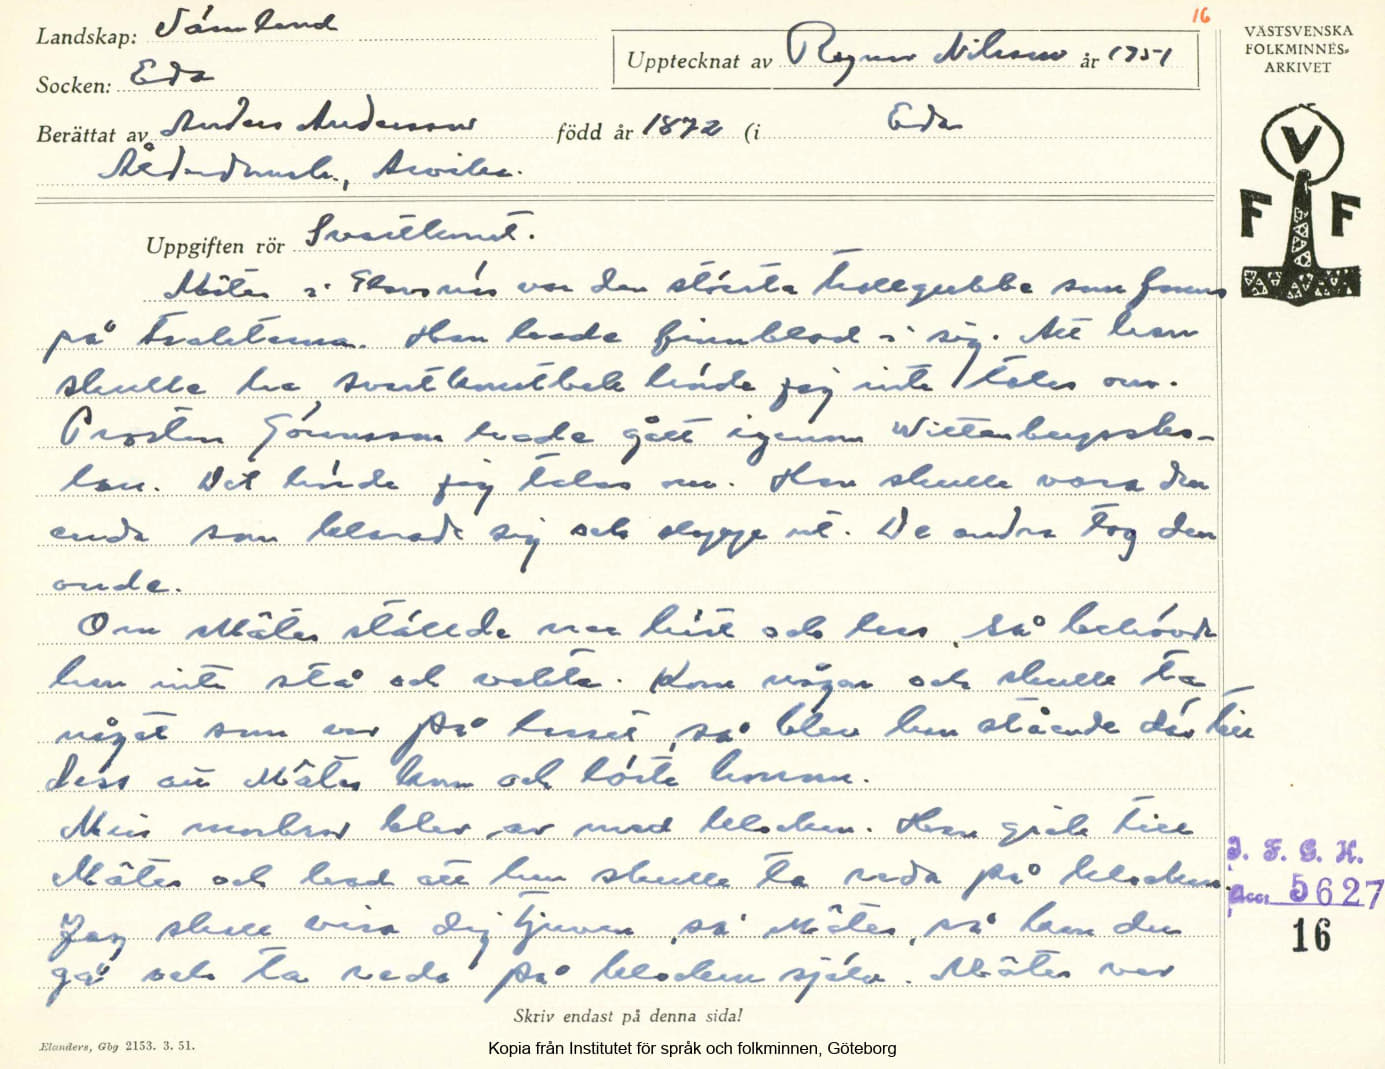 16
Landskap: Värmland
Upptecknat av Ragnar Nilsson år 1951
Socken: Eda
Berättat av Anders Andersson född år 1872 (i Eda
Arvika.
VÄSTSVENSKA
FOLKMINNES-
ARKIVET
V
F F
Uppgiften rör Svartkonst.
Mâtes i var den största trollgubbe som fanns
på trakterna. Han hade finnblod i sig. Att han
skulle ha svartkonstbok hörde jag inte tales om.
Prosten Göransson hade gått igenom Wittenbergssko-
lan. Det hörde jag talas om. Han skulle vara den
enda som klarade sig och slapp ut. De andra tog den
onde.
Om Mâtes ställde när häst och lass, så behövde
han inte stå och vakta. Kom någon och skulle ta
något som var på lasset, så blev han stående där till
dess att Mâtes kom och löste honom.
Min morbror blev av med klockan. Han gick till
Mâtes och bad att han skulle ta reda på klockan.
Jag skall visa dig tjuven, sa Mâtes, så kan du
gå och ta reda på klockan själv. Mâtes var
Skriv endast på denna sida!
Elanders, Gbg 2153. 3. 51.
I. F. G. H.
Acc. 5627
16
Kopia från Institutet för språk och folkminnen, Göteborg